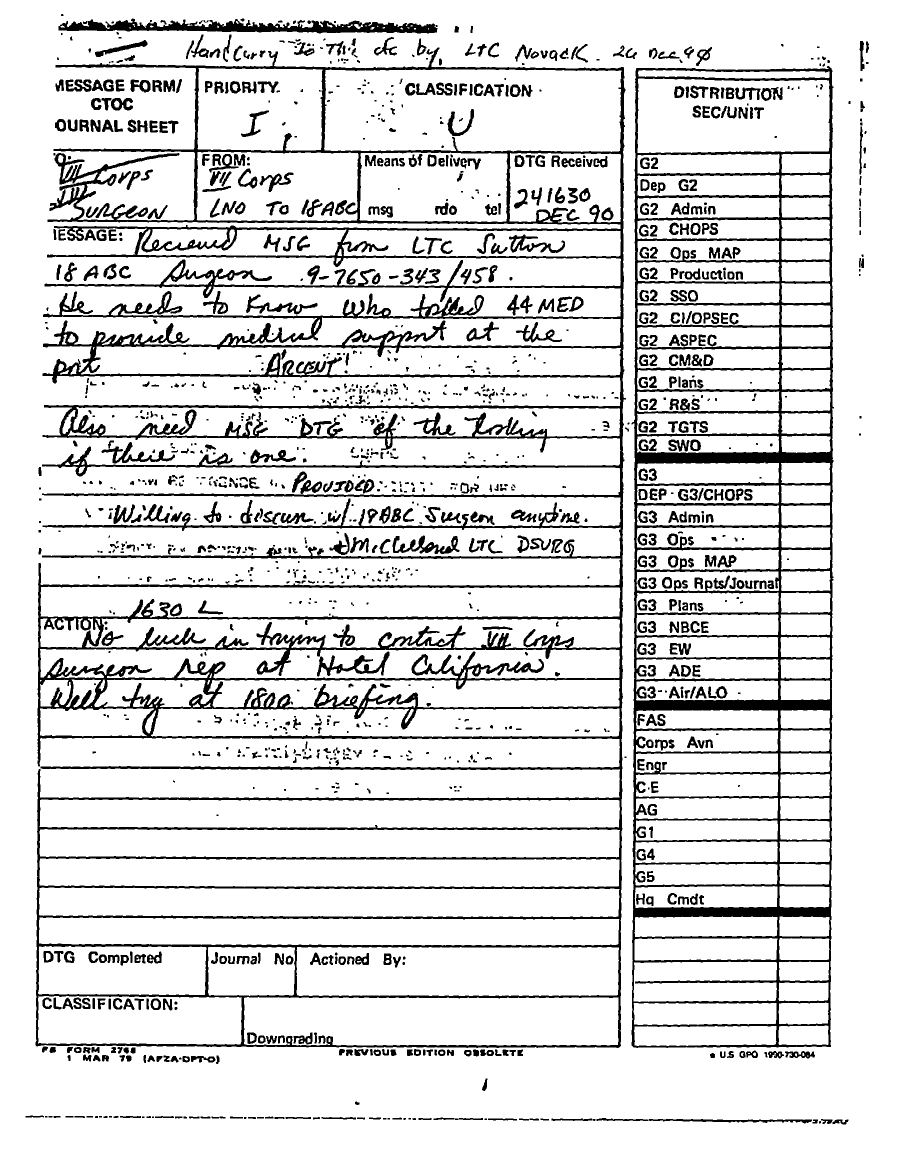 Hand Carry To This ofc by, LTC Novack 24 Dec 90
MESSAGE FORM/
CTOC
JOURNAL SHEET
PRIORITY
I
CLASSIFICATION
U
VII Corps
SURGEON
FROM:
VII Corps
LNO TO 18 ABC
Means of Delivery
msg rdo tel
DTG Received
241630
DEC 90
MESSAGE: Recieved MSG from LTC Sutton
18 ABC Surgeon 9-7650-343/458.
He needs to know who tolled 44 MED
to provide medical support at the
port ARCENT!
Also need MSG DTG of the
if there is one.
PROVIDED
Willing to discuss w/ 18ABC Surgeon anytime.
McClelland LTC DSURG
1630 L
ACTION:
No luck in trying to contact VII Corps
Surgeon rep at Hotel California.
Well try at 1800 briefing.
DTG Completed
Journal No
Actioned By:
CLASSIFICATION:
Downgrading
FB FORM 2768
1 MAR 79 (AFZA-DPT-O)
PREVIOUS EDITION OBSOLETE
DISTRIBUTION
SEC/UNIT
G2
Dep G2
G2 Admin
G2 CHOPS
G2 Ops MAP
G2 Production
G2 SSO
G2 CI/OPSEC
G2 ASPEC
G2 CM&D
G2 Plans
G2 R&S
G2 TGTS
G2 SWO
G3
DEP G3/CHOPS
G3 Admin
G3 Ops
G3 Ops MAP
G3 Ops Rpts/Journal
G3 Plans
G3 NBCE
G3 EW
G3 ADE
G3 Air/ALO
FAS
Corps Avn
Engr
C-E
AG
G1
G4
G5
Hq Cmdt
U.S GPO 1990-730-084